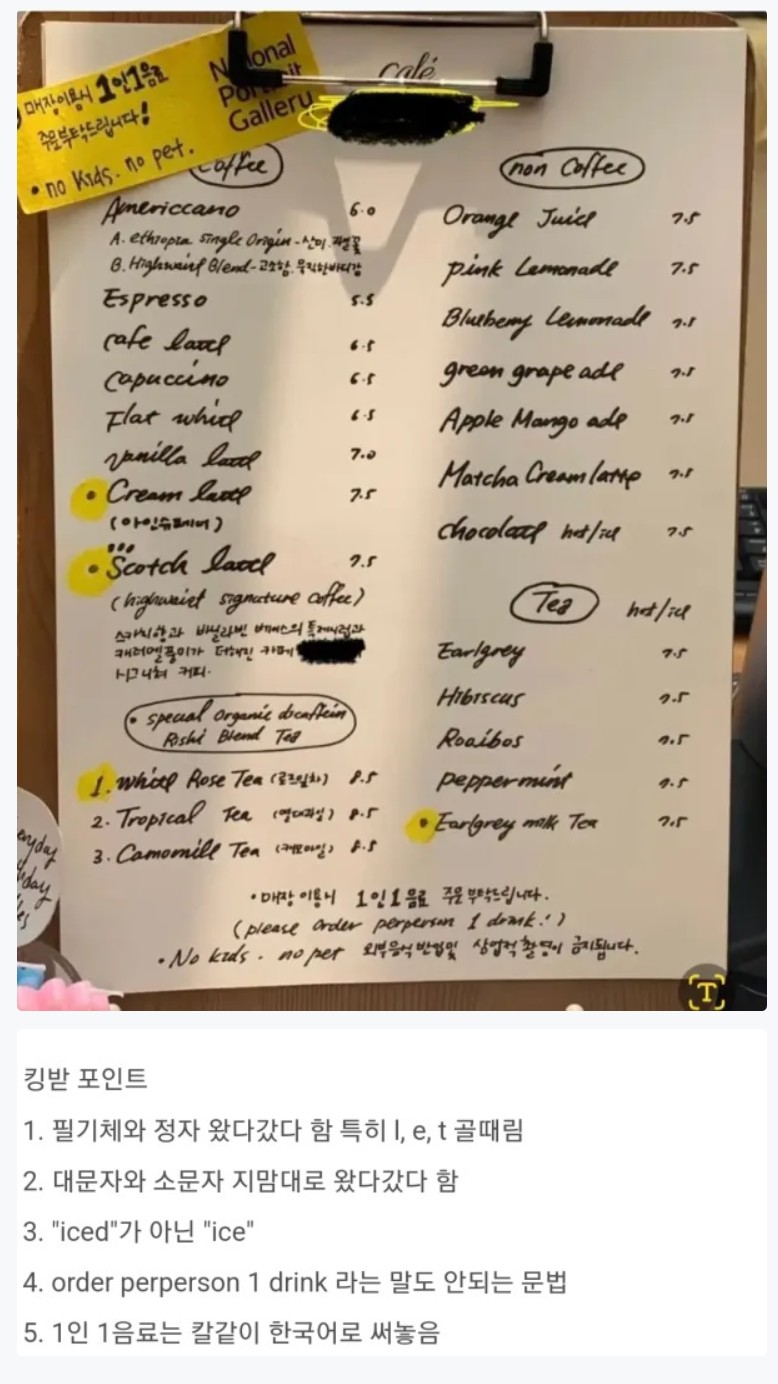 매장이용시 1인1음료
주문부탁드립니다!
• no kids. no pet.
National
Portrait
Gallery
café
Coffee
Americcano 6.0
A. ethiopia single Origin - 산미.
B. Highwaist Blend - 고소함. 묵직한바디감
Espresso 5.5
cafe latte 6.5
Capuccino 6.5
Flat white 6.5
vanilla latte 7.0
• Cream latte 7.5
(아인슈페너)
• Scotch latte 7.5
(highwaist signature coffee)
스카치향과 바닐라빈 베이스의
캐러멜풍미가 더해진 카페
시그니처 커피.
• special Organic decaffein
Rishi Blend Tea
1. White Rose Tea (로즈잎차) 8.5
2. Tropical Tea (열대과일) 8.5
3. Camomill Tea (캐모마일) 8.5
non Coffee
Orange Juice 7.5
pink Lemonade 7.5
Blueberry Lemonade 7.5
green grape ade 7.5
Apple Mango ade 7.5
Matcha Cream latte 7.5
chocolate hot/ice 7.5
Tea hot/ice
Earlgrey 7.5
Hibiscus 7.5
Rooibos 7.5
peppermint 7.5
• Earlgrey milk Tea 7.5
• 매장 이용시 1인1음료 주문 부탁드립니다.
(please order perperson 1 drink!)
• No kids. no pet 외부음식 반입및 상업적 촬영이 금지됩니다.
킹받 포인트
1. 필기체와 정자 왔다갔다 함 특히 l, e, t 골때림
2. 대문자와 소문자 지맘대로 왔다갔다 함
3. "iced"가 아닌 "ice"
4. order perperson 1 drink 라는 말도 안되는 문법
5. 1인 1음료는 칼같이 한국어로 써놓음